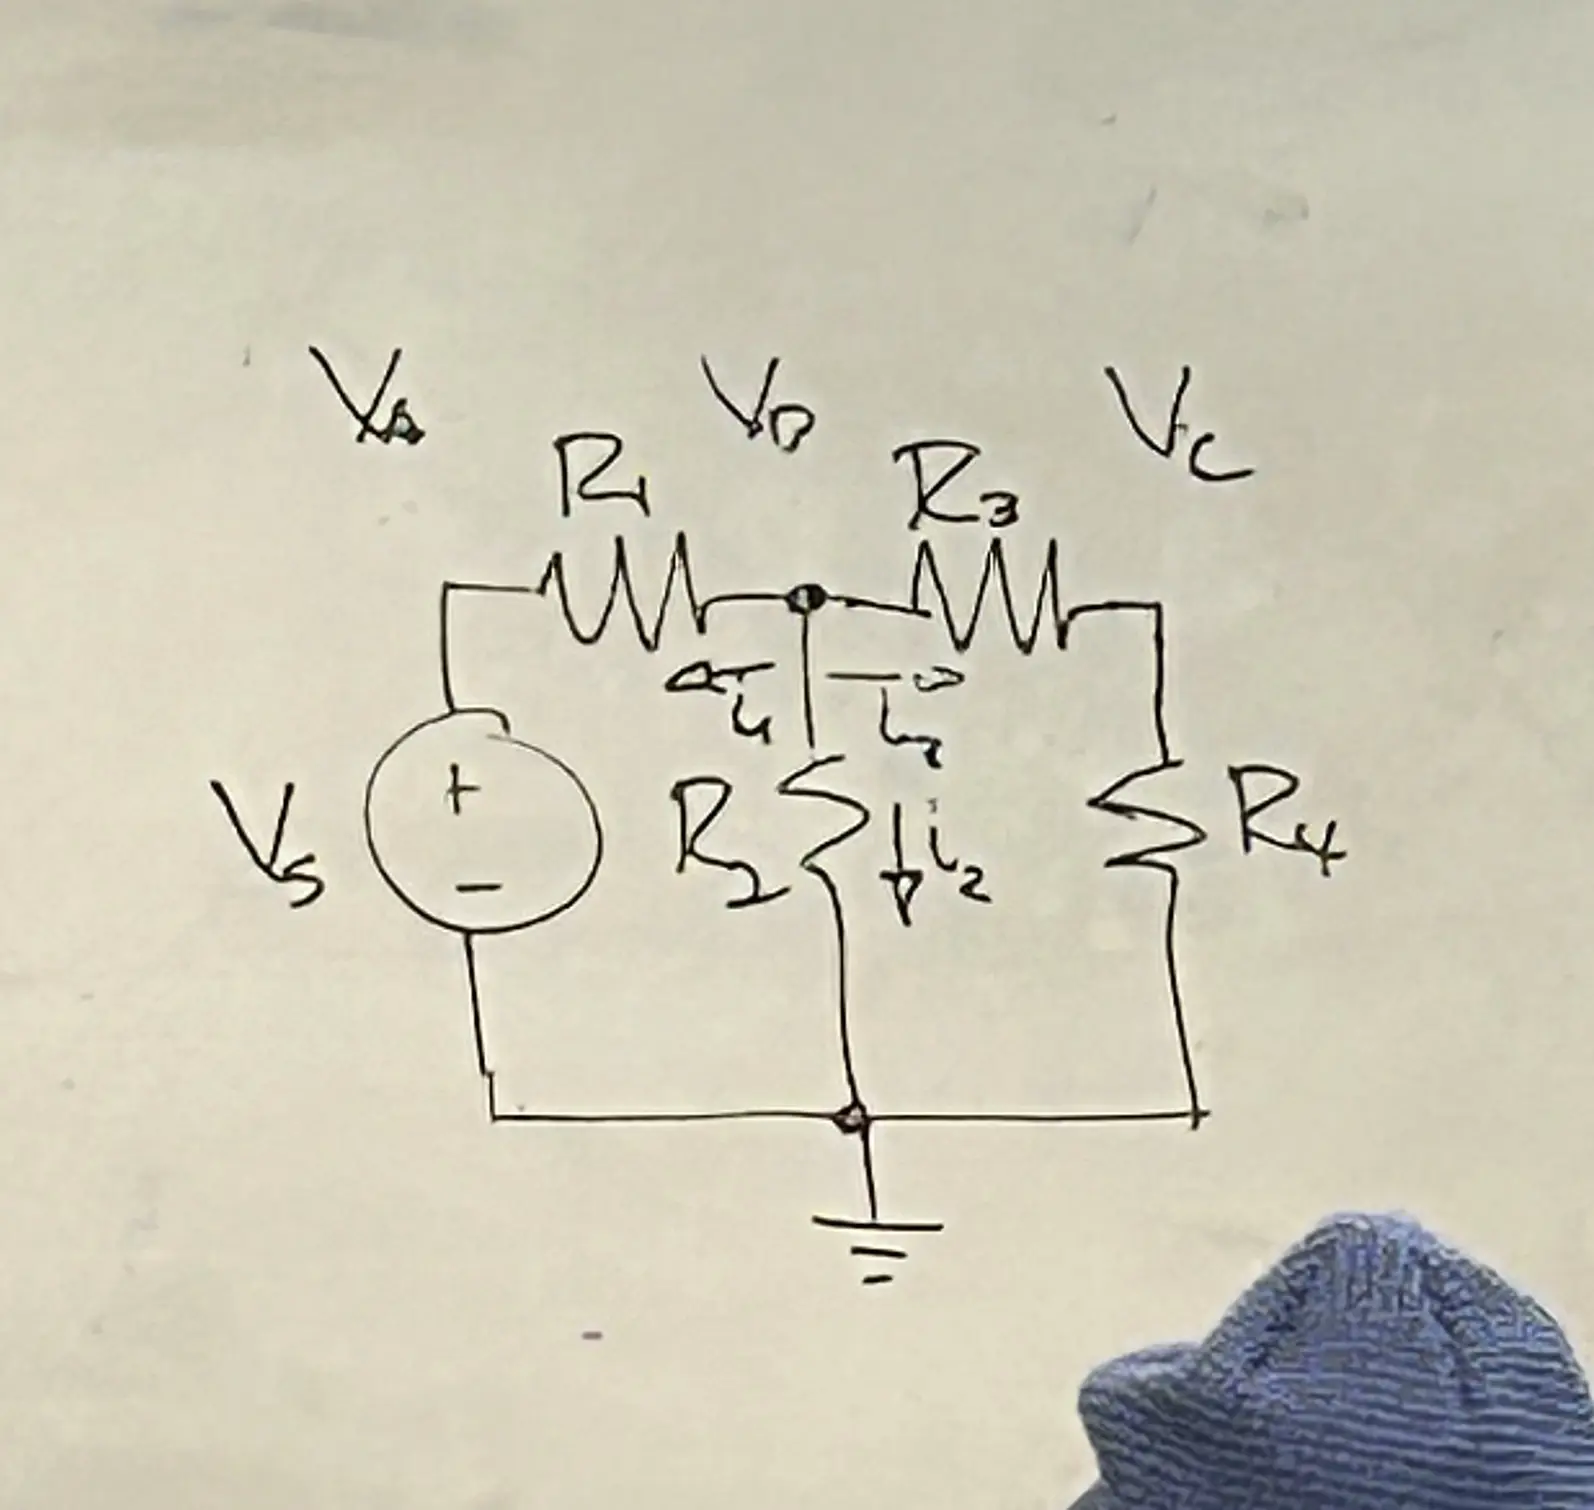 VA VB VC
R1 R3
i1
+
VS R2 i2 R4
−